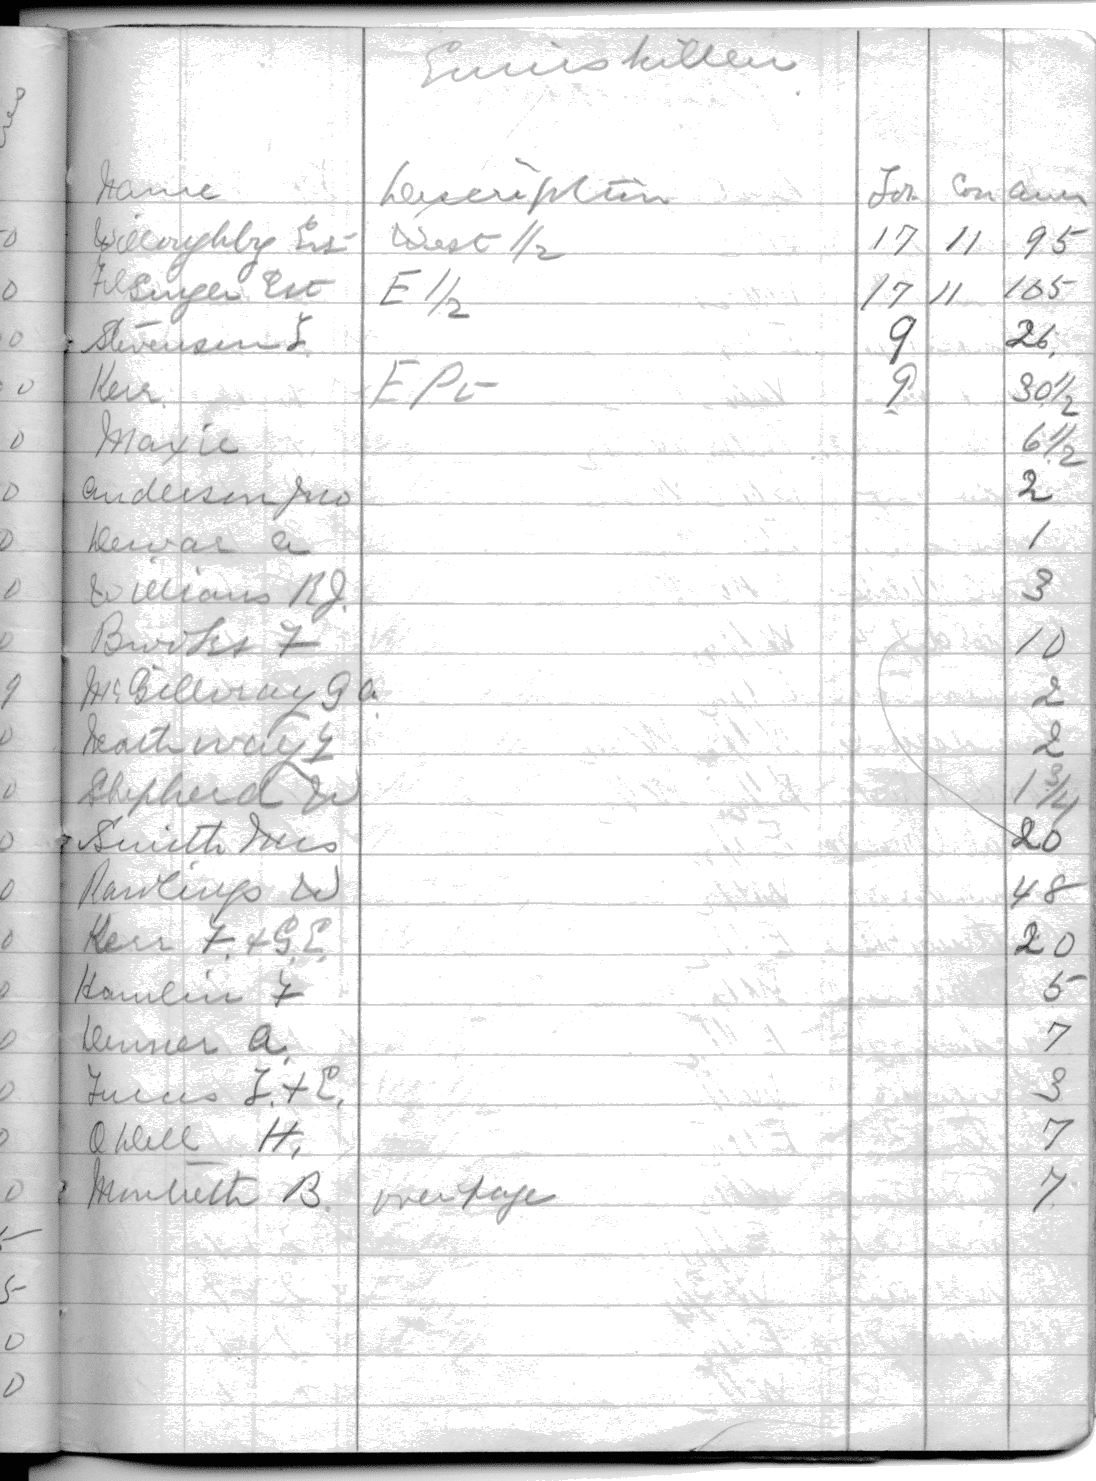 Enniskillen
Name Description Lot Con acres
Willoughby Est West 1/2 17 11 95
Singer Est E 1/2 17 11 105
Stevenson 9 26
Kerr E Pt 9 30 1/2
Maxie 6 1/2
Anderson Jno 2
Dewar A 1
Williams R.J. 3
Brooks F 10
McGillivray G A 2
Northway 2
Shepherd W 1 3/4
Smith 20
Rawlings W 48
Kerr F. + G.E. 20
Hamlin F 5
A. 7
+ E. 3
Odell H. 7
Monteith B. over page 7